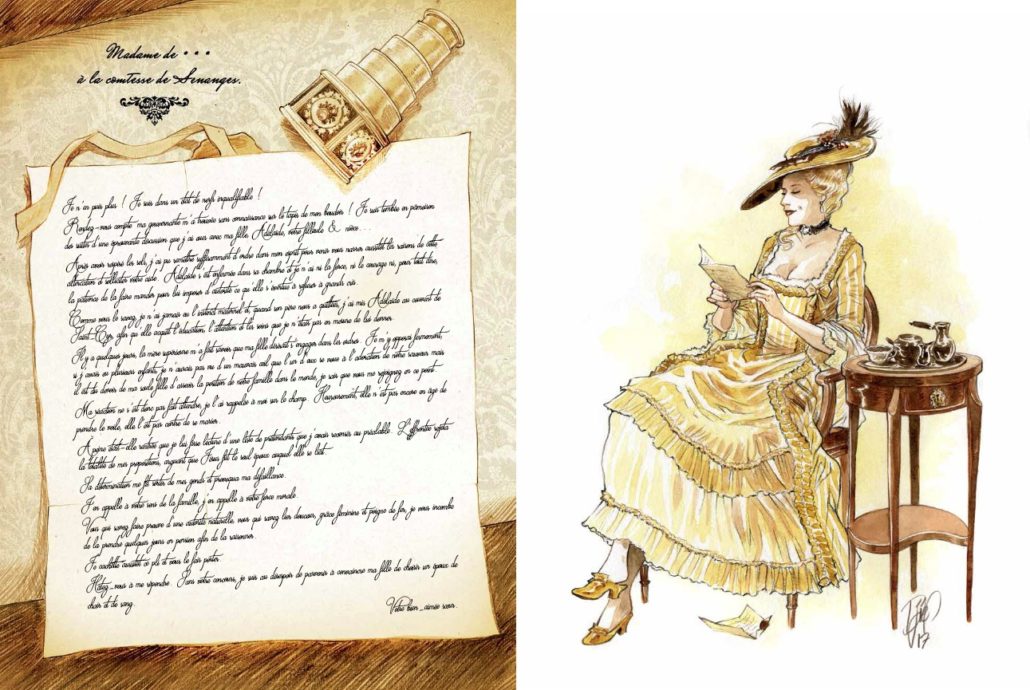 Madame de * * *
à la comtesse de Senanges.
Je n'en puis plus ! Je suis dans un état de nerfs inqualifiable !
Rendez-vous compte ma gouvernante m'a trouvée sans connaissance sur le tapis de mon boudoir ! Je suis tombée en pâmoison
des suites d'une éprouvante discussion que j'ai eue avec ma fille, Adélaïde, votre filleule & nièce...
Après avoir respiré les sels, j'ai pu remettre suffisamment d'ordre dans mon esprit pour venir vous narrer aussitôt les raisons de cette
altercation et solliciter votre aide. Adélaïde s'est enfermée dans sa chambre et je n'ai ni la force, ni le courage ni, pour tout dire,
la patience de la faire mander pour lui imposer d'autorité ce qu'elle s'évertue à refuser à grands cris.
Comme vous le savez, je n'ai jamais eu l'instinct maternel et, quand son père nous a quittées, j'ai mis Adélaïde au couvent de
Saint-Cyr, afin qu'elle acquît l'éducation, l'attention et les soins que je n'étais pas en mesure de lui donner.
Il y a quelques jours, la mère supérieure m'a fait savoir que ma fille désirait s'engager dans les ordres. Je m'y opposai fermement,
si j'avais eu plusieurs enfants, je n'aurais pas vu d'un mauvais œil que l'un d'eux se voue à l'adoration de notre sauveur mais
il est du devoir de ma seule fille d'asseoir la position de notre famille dans le monde, je sais que vous me rejoignez en ce point.
Ma réaction ne s'est donc pas fait attendre, je l'ai rappelée à moi sur le champ. Heureusement, elle n'est pas encore en âge de
prendre le voile, elle l'est par contre de se marier.
À peine était-elle rentrée que je lui fis lecture d'une liste de prétendants que j'avais recensés au préalable. L'effrontée rejeta
la totalité de mes propositions, arguant que Jésus fût le seul époux auquel elle se liât.
Sa détermination me fit sortir de mes gonds et provoqua ma défaillance.
J'en appelle à votre sens de la famille, j'en appelle à votre force morale.
Vous qui savez faire preuve d'une autorité naturelle, vous qui savez lier douceur, grâce féminine et poigne de fer, je vous incombe
de la prendre quelques jours en pension afin de la raisonner.
Je cachette aussitôt ce pli et vous le fais porter.
Hâtez-vous à me répondre. Sans votre concours, je suis au désespoir de parvenir à convaincre ma fille de choisir un époux de
chair et de sang.
Votre bien-aimée sœur.
17